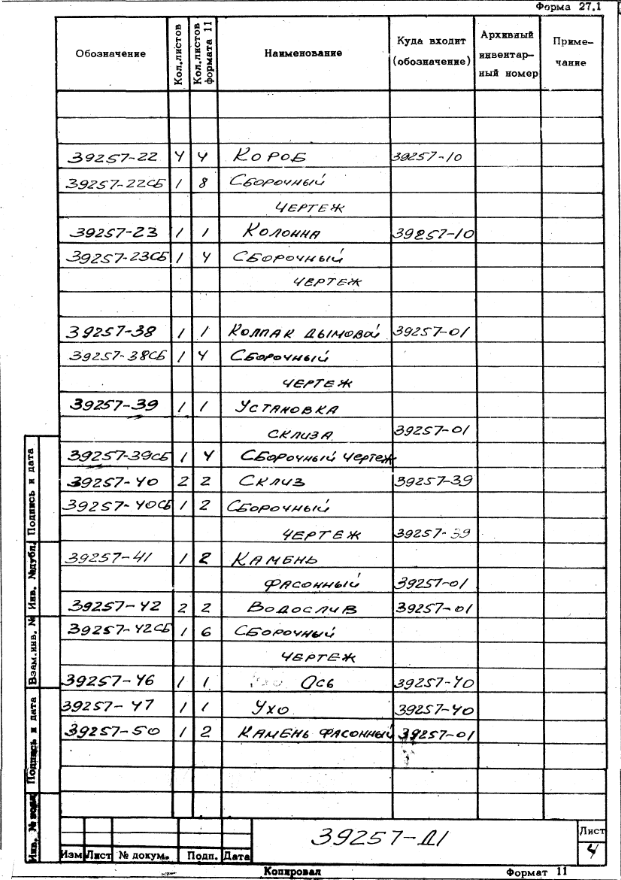 Форма 27.1
Обозначение Кол.листов Кол.листов формата 11 Наименование Куда входит (обозначение) Архивный инвентарный номер Примечание
39257-22 4 4 Короб 39257-10
39257-22СБ 1 8 Сборочный
чертеж
39257-23 1 1 Колонна 39257-10
39257-23СБ 1 4 Сборочный
чертеж
39257-38 1 1 Колпак дымовой 39257-01
39257-38СБ 1 4 Сборочный
чертеж
39257-39 1 1 Установка
склиза 39257-01
39257-39СБ 1 4 Сборочный чертеж
39257-40 2 2 Склиз 39257-39
39257-40СБ 1 2 Сборочный
чертеж 39257-39
39257-41 1 2 Камень
фасонный 39257-01
39257-42 2 2 Водослив 39257-01
39257-42СБ 1 6 Сборочный
чертеж
39257-46 1 1 Ось 39257-40
39257-47 1 1 Ухо 39257-40
39257-50 1 2 Камень фасонный 39257-01
Подпись и дата
Инв. №дубл.
Взам.инв. №
Подпись и дата
Инв. № подл
39257-Д1
Лист
4
Изм Лист № докум. Подп. Дата
Копировал
Формат 11